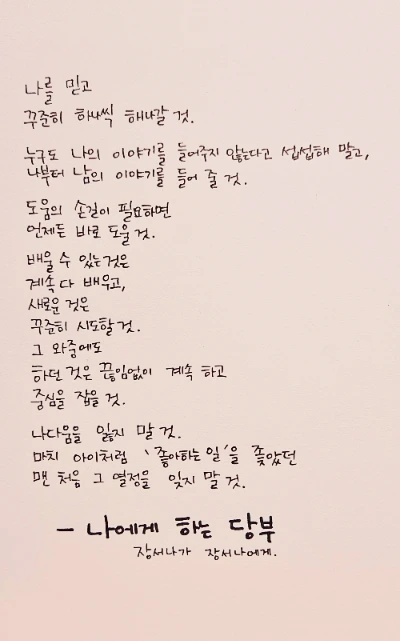 나를 믿고
꾸준히 하나씩 해나갈 것.
누구도 나의 이야기를 들어주지 않는다고 섭섭해 말고,
나부터 남의 이야기를 들어 줄 것.
도움의 손길이 필요하면
언제든 바로 도울 것.
배울 수 있는 것은
계속 다 배우고,
새로운 것은
꾸준히 시도할 것.
그 와중에도
하던 것은 끊임없이 계속 하고
중심을 잡을 것.
나다움을 잃지 말 것.
마치 아이처럼 '좋아하는 일'을 좇았던
맨 처음 그 열정을 잊지 말 것.
- 나에게 하는 당부
장서나가 장서나에게.